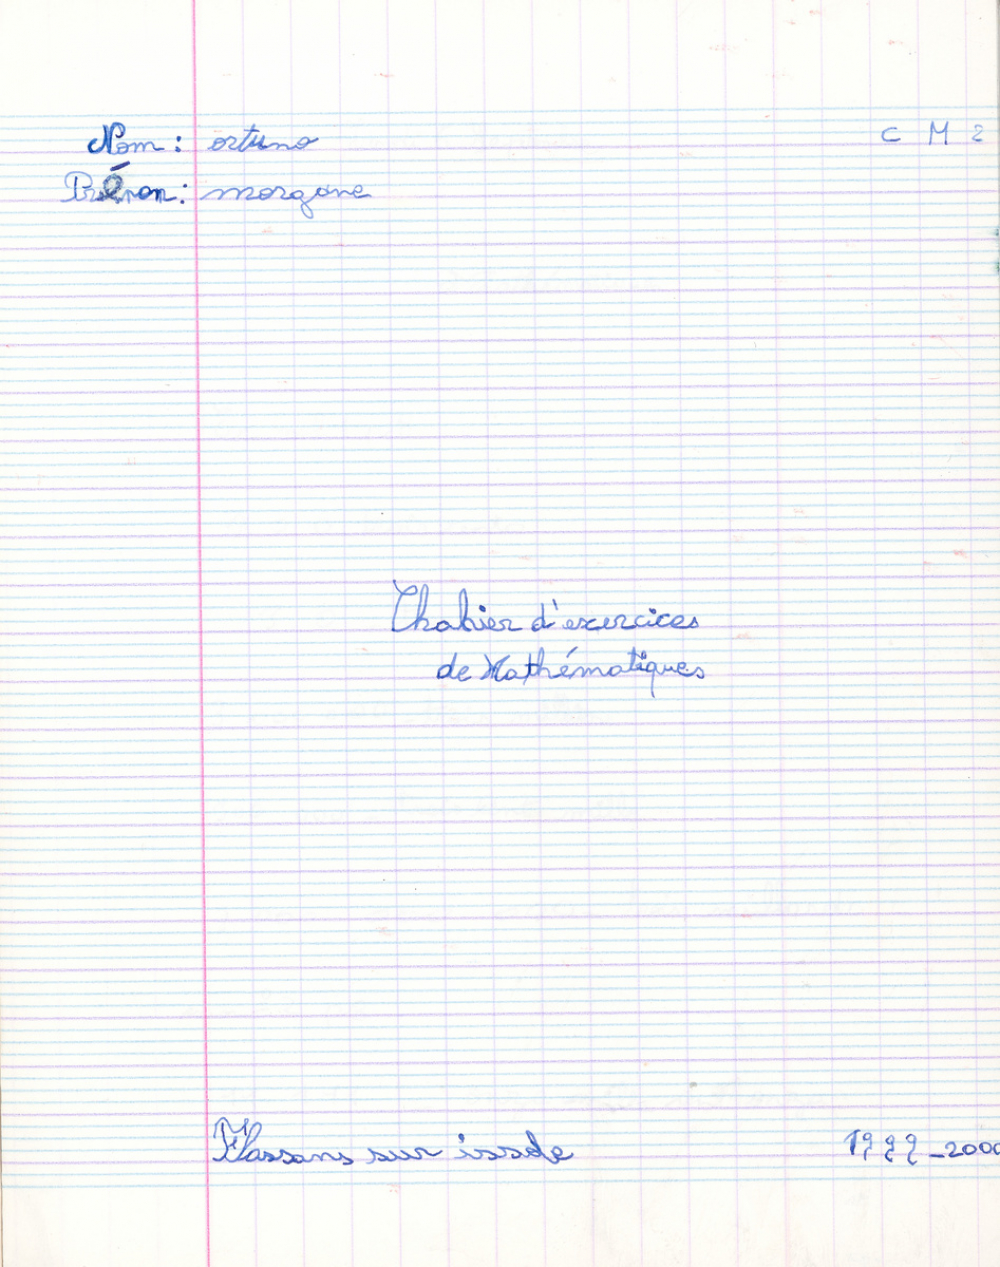 Nom : ortuno
C M 2
Prénon : morgane
Chahier d'exercices
de Mathématiques
Flassans sur issole
1999_2000